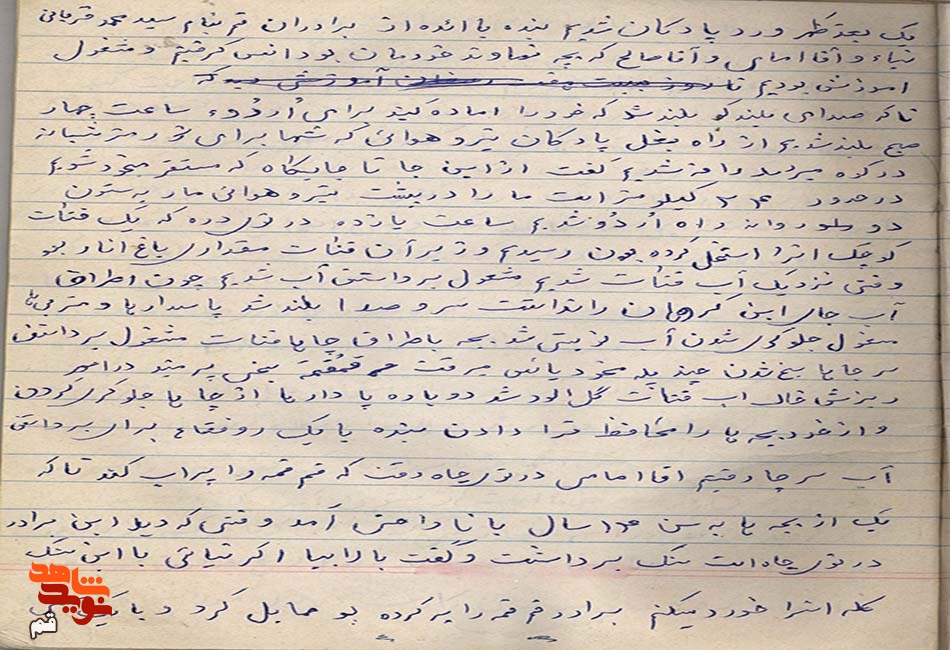 یک بعد ظهر ورد پادگان شدیم بنده با ائده از برادران قم بنام سید محمد قربانی
نیاء و آقا امامی و آقا صالح که بچه نهاوند خودمان بود انس گرفتیم و مشغول
اموزش بودیم تا روز بیست
تا که صدای بلندگو بلند شد که خود را اماده کنید برای اُردُوء ساعت چهار
صبح بلند شدیم از راه بغل پادگان نیرو هوائی که شما برای رزم شبانه
در کوه میروید روانه شدیم گفت از این جا تا جایگاه که مستقر میخود شویم
در حدود کیلومتر است ما را در پشت نیرو هوائی مار به ستون
دو جلو روانه راه اُردُو شدیم ساعت یازده در توی دره که یک قنات
کوچک انرا استخل کرده بودن رسیدیم و زیر آن قنات مقداری باغ انار بود
وقتی نزدیک آب قنات شدیم مشغول برداشتن آب شدیم چون اطراق
آب جای این گردهان را نداشت سر و صدا بلند شد پاسدارها و مربی ها
مشغول جلوگیری شدن آب نزیتی شد بچه ها طراق چاها قنات مشغول برداشتن
سر چاها پخ شدن چند پله میخود پائین میرفت قمقمه بخی پر میشد در اثر
ریزش خاک اب قنات گل الود شد دوباره پادارها از چاها جلوگیری کردن
و از خود بچه ها را محافظ قرا دادن بنده با یک رو فقاء برای برداشتن
آب سر چا رفتیم اقا امامی در توی چاه رفت که قم قمه را پراب کند تا که
یک از بچه ها به سن سال با ناراحتی آمد وقتی که دید این برادر
در توی چاه است سنگ برداشت و گفت بالا بیا اگر نیائی با این سنگ
کله اترا خورد میکنم برادر قم قمه را پر کرده بو ممابل کرد و با یک
شاهد
نوید
قم